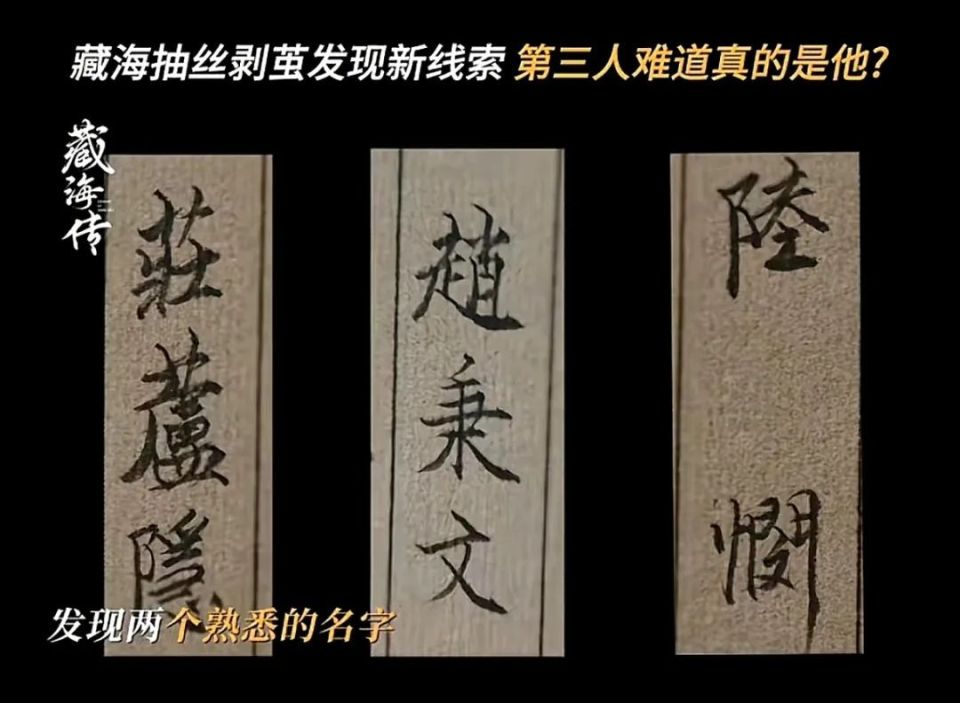 藏海抽丝剥茧发现新线索 第三人难道真的是他?
藏海传
莊蘆隱
趙秉文
陸憫
发现两个熟悉的名字